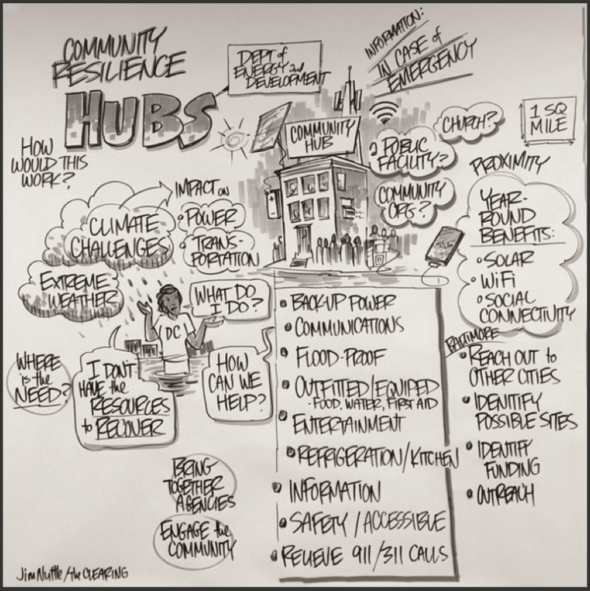 COMMUNITY
RESILIENCE
HUBS
DEPT of
ENERGY and
DEVELOPMENT
INFORMATION:
IN CASE of
EMERGENCY
HOW
WOULD THIS
WORK?
COMMUNITY
HUB
PUBLIC
FACILITY?
CHURCH?
COMMUNITY
ORG?
1 SQ
MILE
PROXIMITY
CLIMATE
CHALLENGES
EXTREME
WEATHER
IMPACT on
POWER
TRANS-
PORTATION
YEAR-
ROUND
BENEFITS:
SOLAR
WiFi
SOCIAL
CONNECTIVITY
DC
WHAT DO
I DO?
WHERE
is the
NEED?
I DON'T
HAVE the
RESOURCES
to RECOVER
HOW
CAN WE
HELP?
BACK-UP POWER
COMMUNICATIONS
FLOOD-PROOF
OUTFITTED/EQUIPED
-FOOD, WATER, FIRST AID
ENTERTAINMENT
REFRIGERATION/KITCHEN
INFORMATION
SAFETY/ACCESSIBLE
RELIEVE 911/311 CALLS
BALTIMORE
REACH OUT to
OTHER CITIES
IDENTIFY
POSSIBLE SITES
IDENTIFY
FUNDING
OUTREACH
BRING
TOGETHER
AGENCIES
ENGAGE the
COMMUNITY
Jim Nuttle/the CLEARING